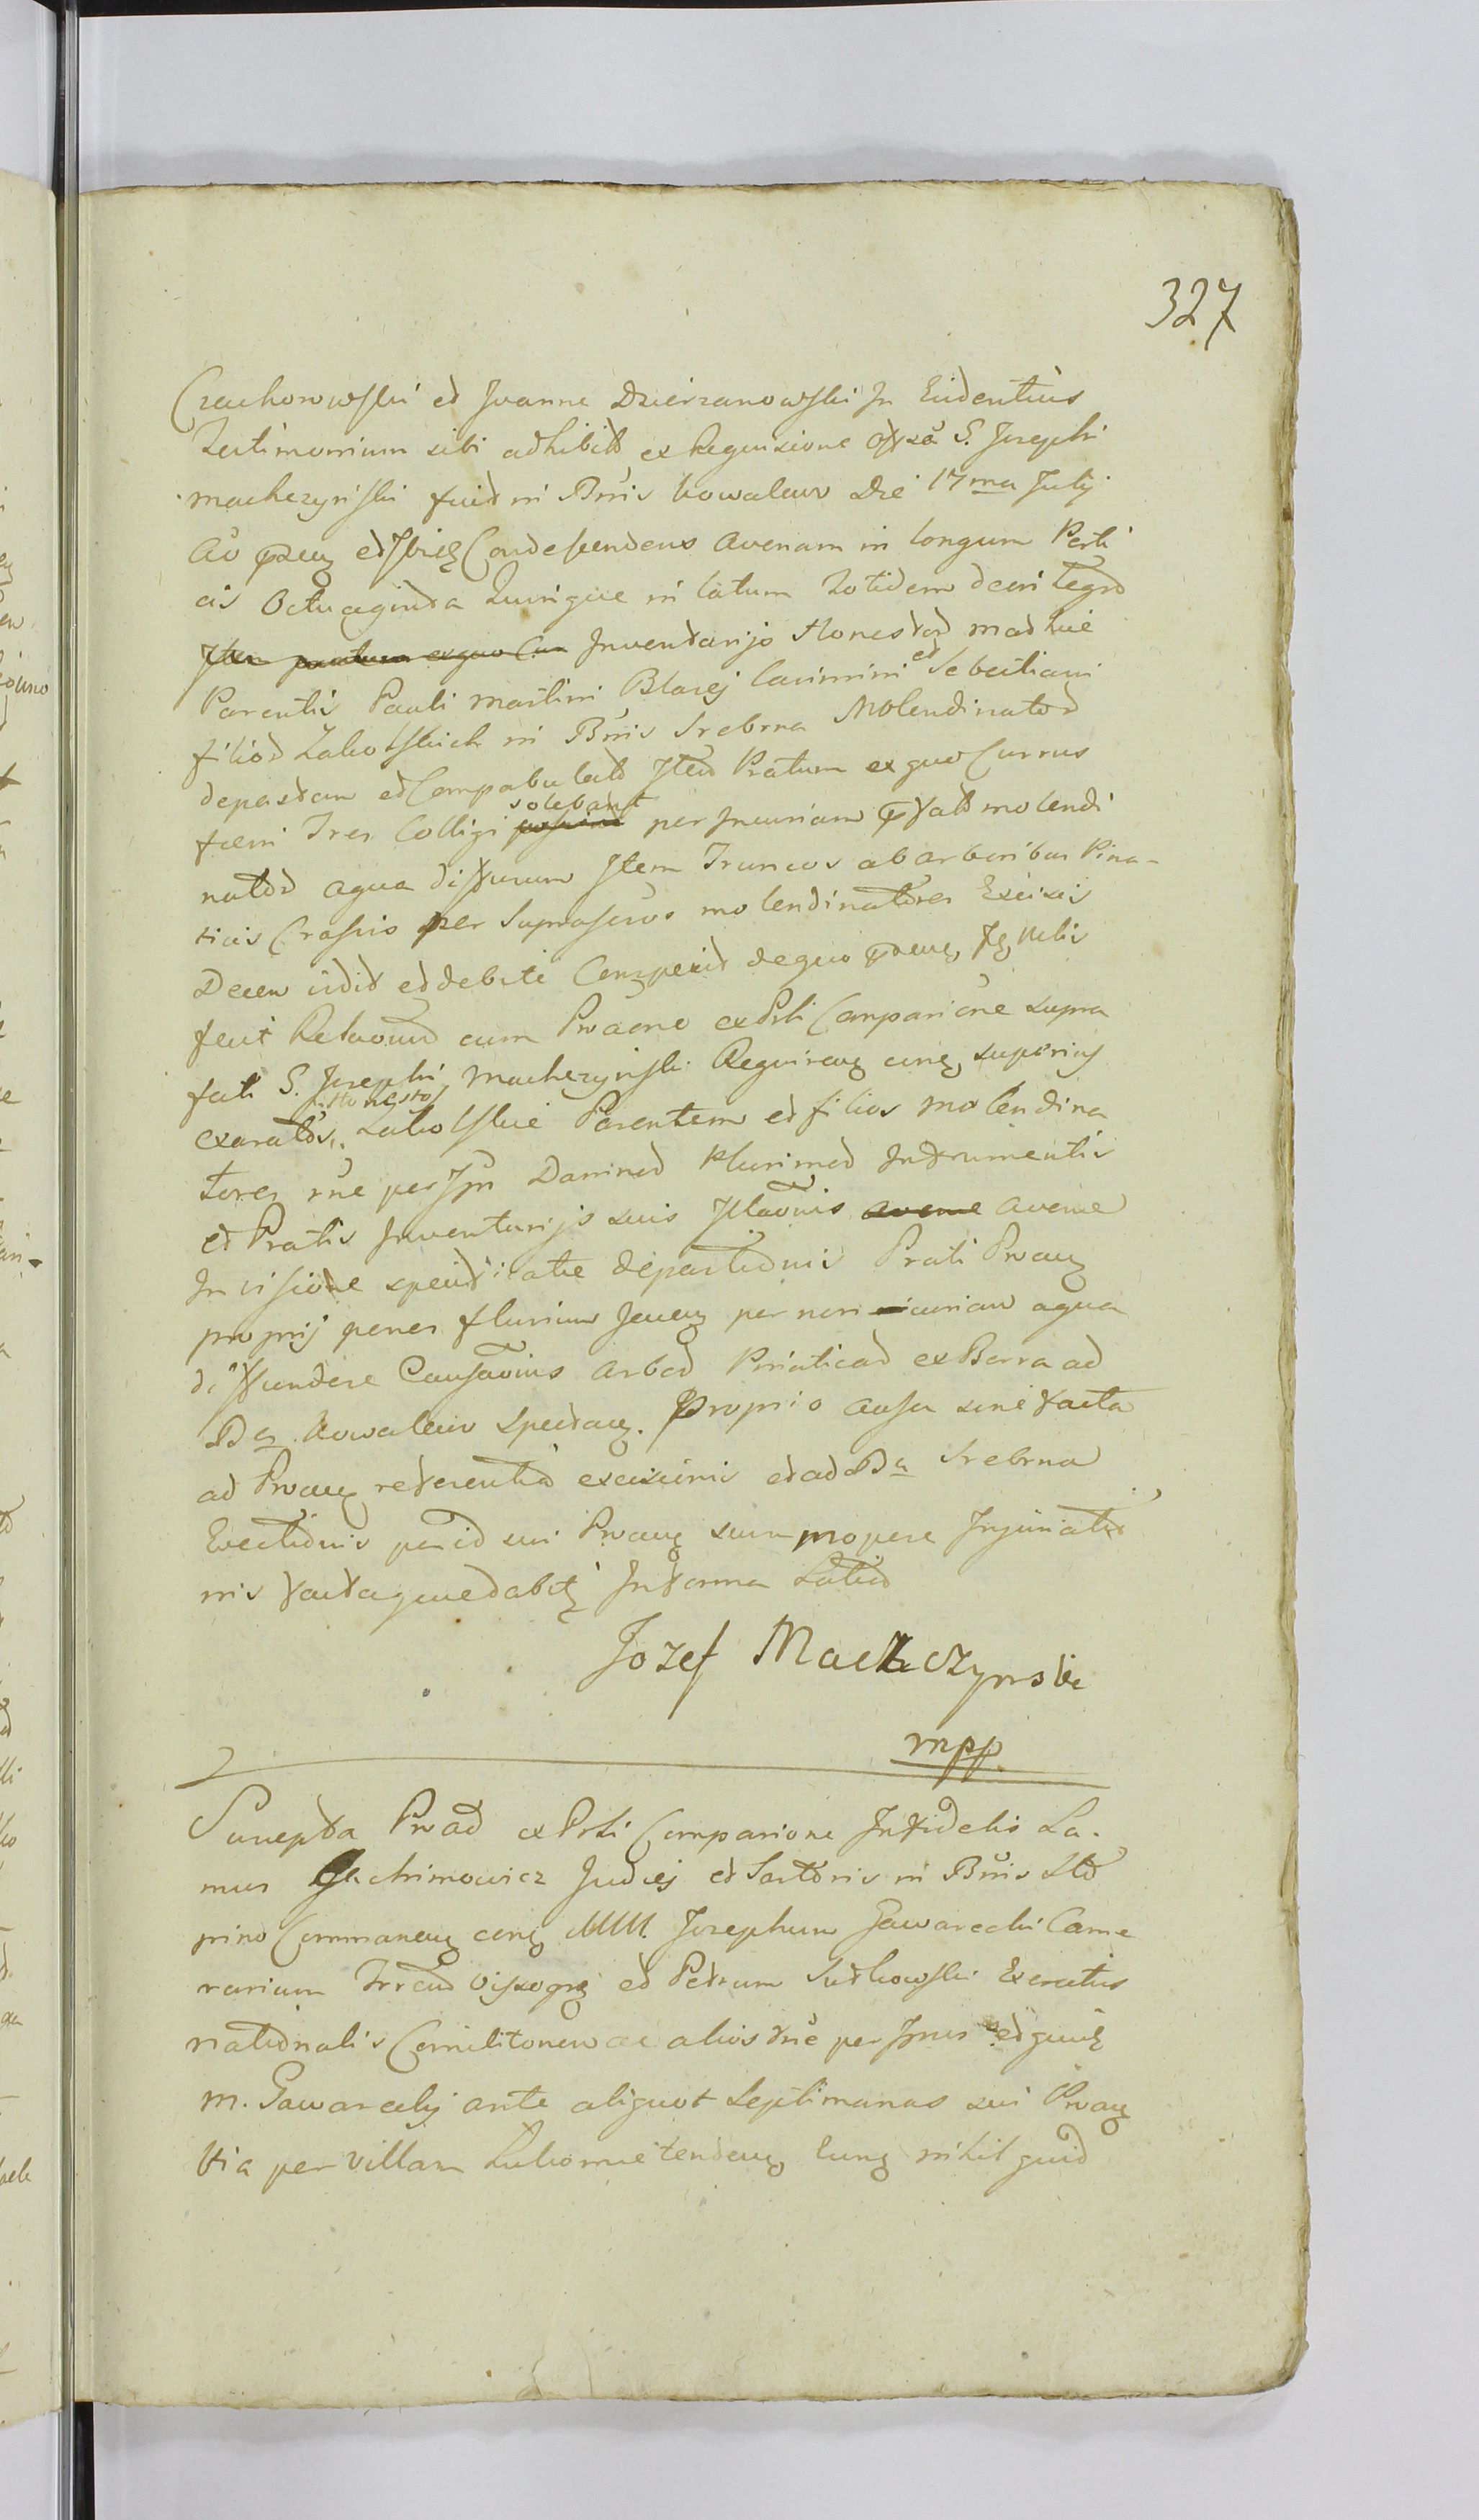 327
Czachorowski et Joanne Dzierzanowski In Evidentius
Testimonium sibi adhibit ex Requisione S. Josephi
machczynski fuit in Bnis kowalewo Die 17ma July
Ao et Ibiq Condescendens avenam in longum Perti
cis Octuaginta Quinque in latum Totidem
Item pratum ex quo Cur Inventarijs Honestor mathie
Parentis Pauli martini Blasej Casimiri et Sebastiani
filior Zakolskich in Bnis Srebrna Molendinator
depastam et Compabulat Item Pratum ex quo Currus
faeni Tres Colligi solebant per Incuriam molendi
nator aqua diffusum Item Truncos ab arboribus Pina-
ticis Crassio per Suprascros molendinatores Excisis
Decem vidit et debite Conspexit de quo
fecit Relaonem cum Proaone ex Prli Comparione supra
fati S. Josephi machczynski Requiren cirq superius
exaratos Honestos Zakolskie Parentem et filios molendina
tores rne per Ipn Damnor Plurimor Instrumentis
et Pratis Inventarijs suis Illaonis avene avene
In visione depastionis Prati Proan
proprij penes fluvium per non curiam aqua
diffundere Causaonis arbor Pinaticar ex Borra ad
Ba kowalewo Spectan. Proprio ausu sine facta
ad Proan referentia excisionis et ad Ba Srebrna
Evectionis per id sui Proan summopere Injuriatio
nis facta que dabit In forma Latior
Jozef Machczynski
mpp.
Suscepta Proao ex Prli Comparione Infidelis La-
mus Jachimowicz Judej et Sartoris in Bnis
pino Commanen cirq MM. Josephum Gawarecki Came
rarium Trrarum Wyszogr et Petrum Sutkowski Exercitus
nationalis Comilitonem ac alios rne per Ipnos et quia
M. Gawarecky ante aliquot Septimanas sui Proan
Via per Villam tenden nihil quid